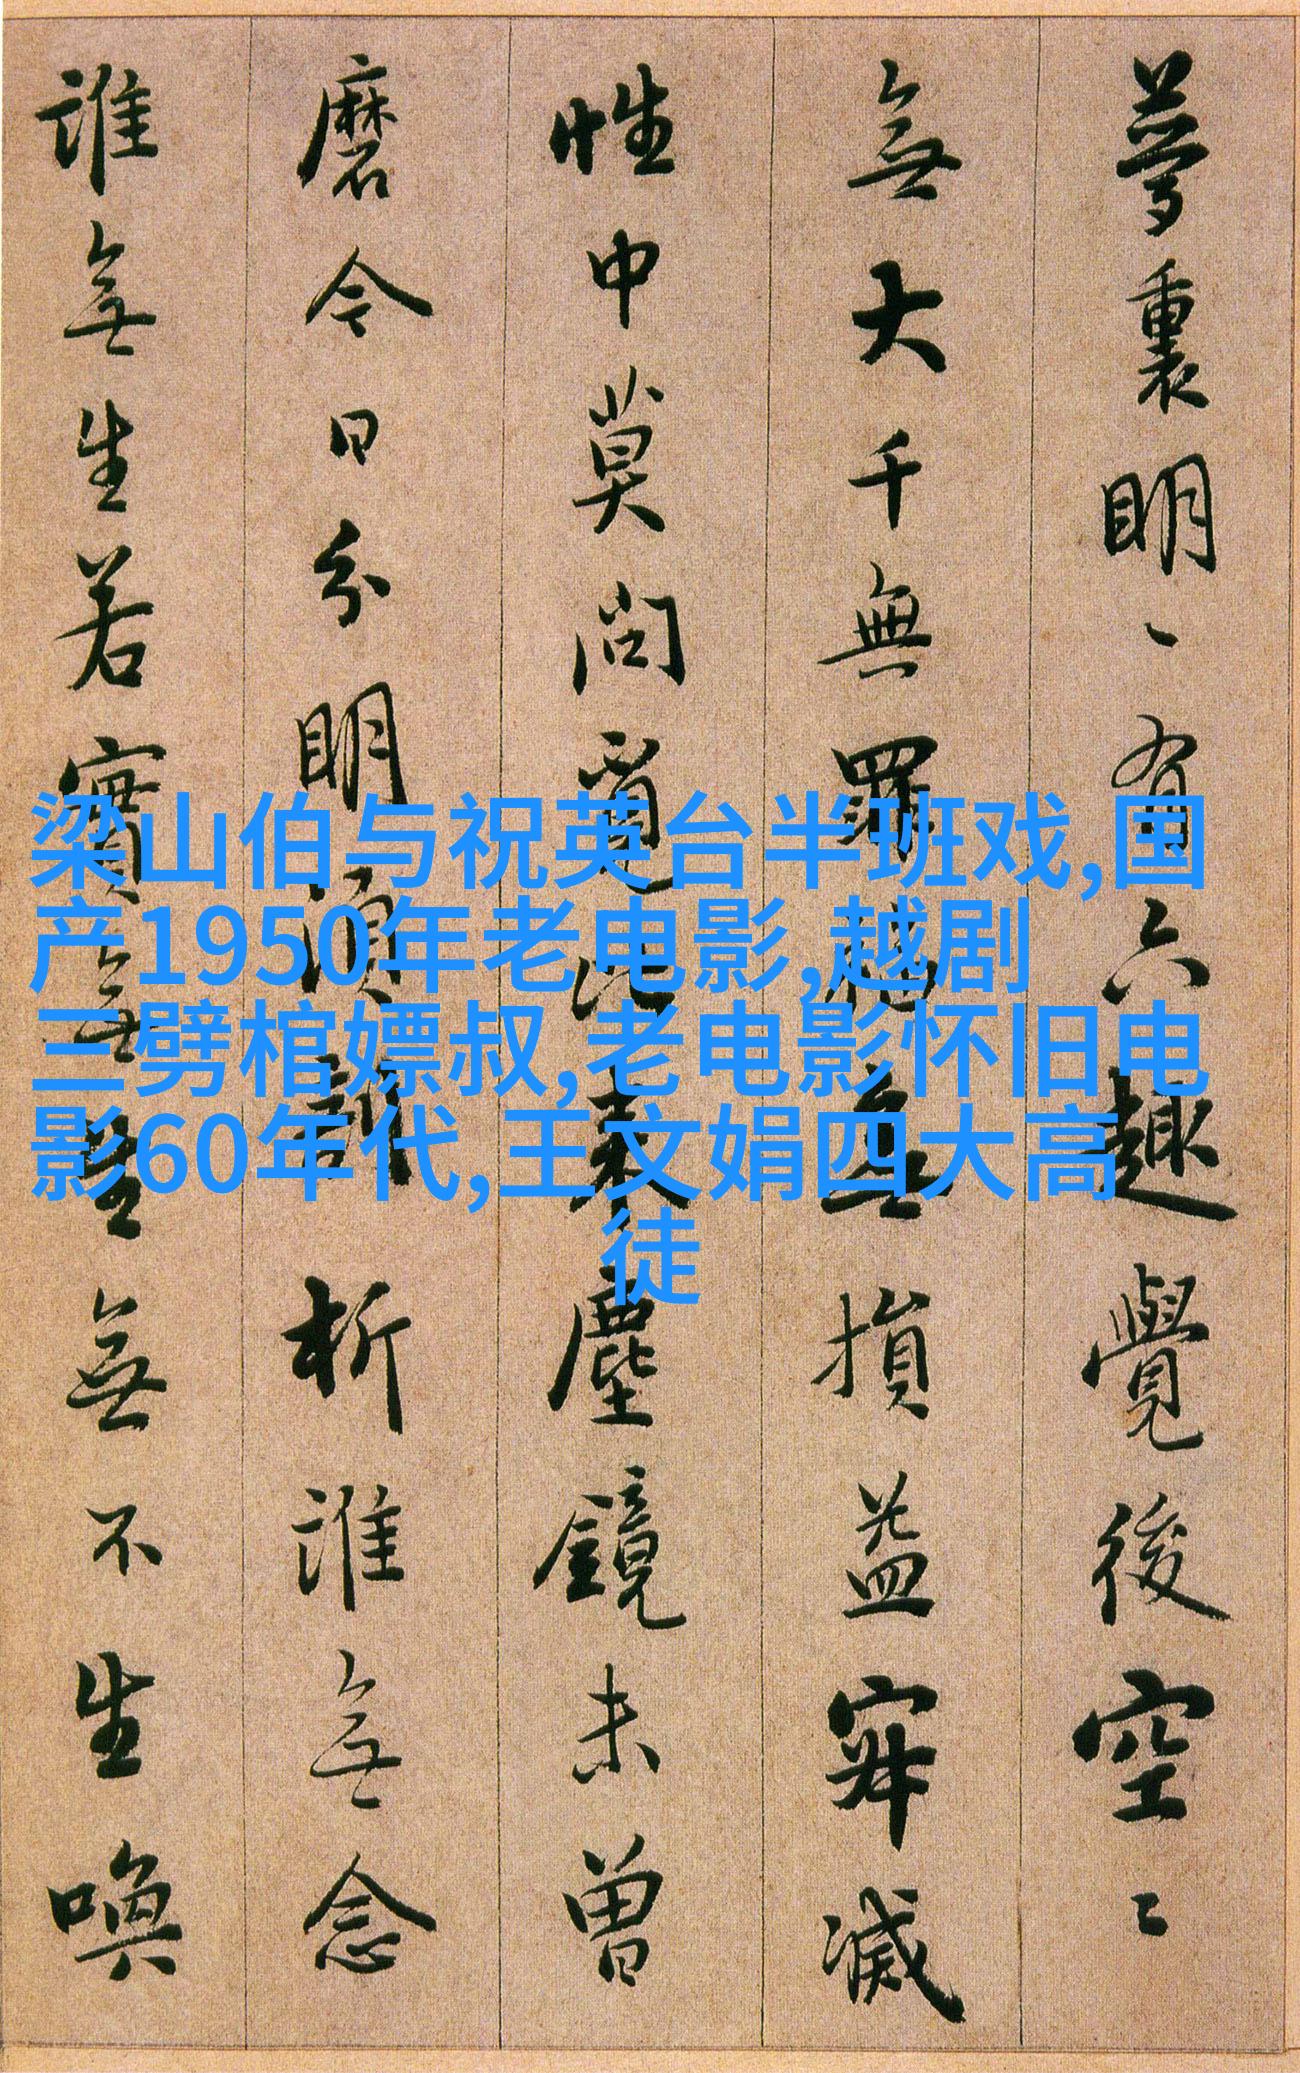 夢裏明〻有六趣覺後空〻
無大千無罪福無損益寂滅
性中莫問覓比來塵鏡未曾
磨今日分明須剖析誰無念
誰無生若實無生無不生喚
梁山伯与祝英台半班戏,国
产1950年老电影,越剧
三劈棺嫖叔,老电影怀旧电
影60年代,王文娟四大高
徒